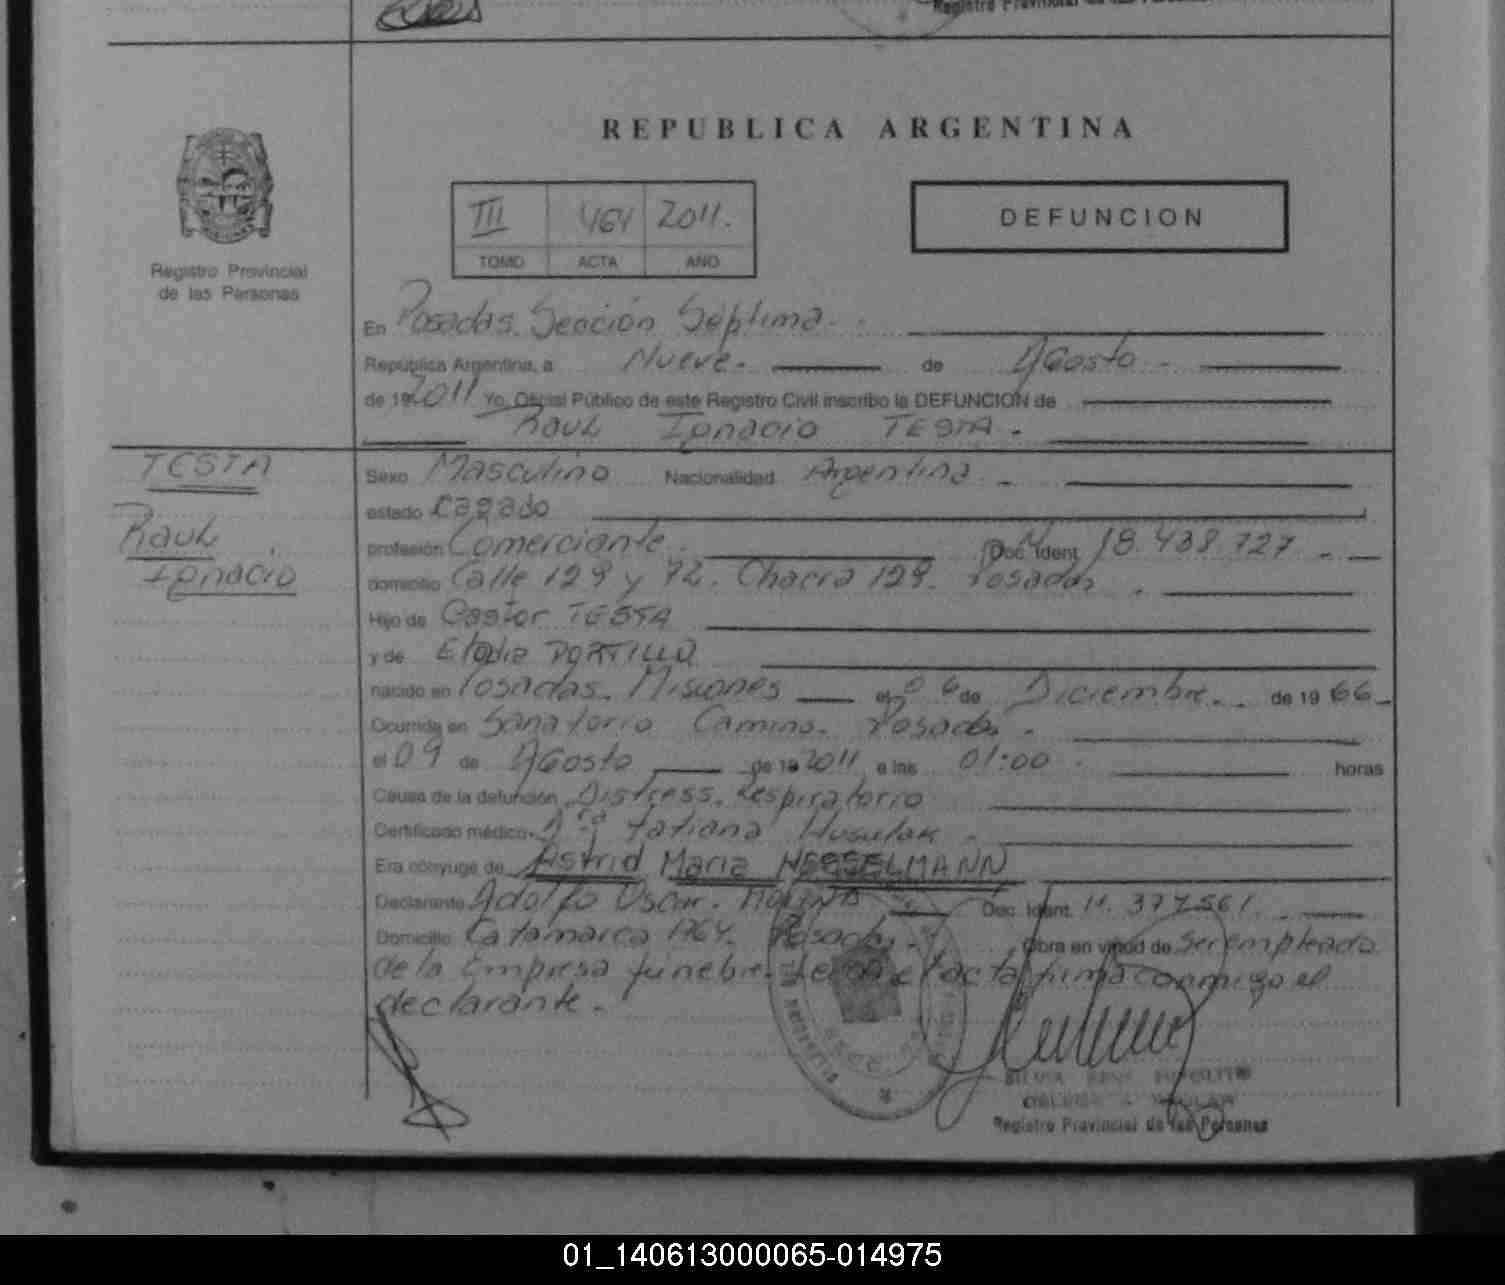 Registro Provincial de las Personas
REPUBLICA ARGENTINA
III 464 2011.
TOMO ACTA AÑO
DEFUNCION
Registro Provincial
de las Personas
En Posadas. Sección Séptima.
República Argentina, a Nueve. de Agosto
de 19 2011 Yo, Oficial Público de este Registro Civil inscribo la DEFUNCION de
Raul Ignacio TESTA.
TESTA
Raul
Ignacio
Sexo Masculino Nacionalidad Argentina
estado casado
profesión Comerciante. Doc. Ident. 18.438.727
domicilio Calle 129 y 72. Chacra 129. Posadas
Hijo de Castor TESTA
y de Elodia PORTILLO
nacido en Posadas. Misiones el 06 de Diciembre. de 19 66
Ocurrida en Sanatorio Camino. Posadas.
el 09 de Agosto de 19 2011 a las 01:00 horas
Causa de la defunción Distress. Respiratorio
Certificado médico Dra Tatiana Husulak
Era cónyuge de Astrid Maria HESSELMANN
Declarante Adolfo Oscar. MOLINA Doc. Ident. 11.377.561.
Domicilio Catamarca 1764. Posadas. Obra en virtud de ser empleado
de la Empresa fúnebre. Leída el acta firma conmigo el
declarante.
Registro Provincial de las Personas
01_140613000065-014975